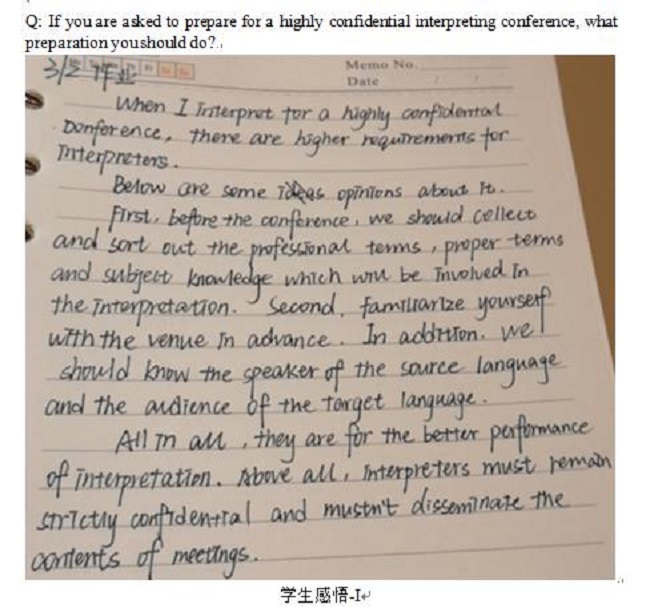 Q: If you are asked to prepare for a highly confidential interpreting conference, what
preparation you should do?
3/2 作业
Memo No.
Date
When I Interpret for a highly confidental
Donference, there are higher requirements for
Interpreters.
Below are some opinions about It.
First, before the conference, we should collect
and sort out the professional terms, proper terms
and subject knowledge which will be Involved In
the Interpretation. Second, familiarize yourself
with the venue In advance. In addition, we
should know the speaker of the source language
and the audience of the target language.
All In all, they are for the better performance
of interpretation. Above all, Interpreters must remain
strictly confidential and mustn't disseminate the
contents of meetings.
学生感悟-I